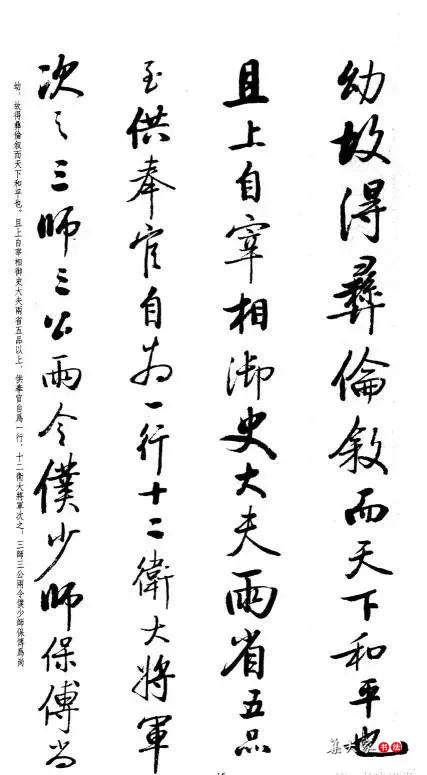 幼故得彝倫敘而天下和平也
且上自宰相御史大夫兩省五品
以上供奉官自為一行十二衛大將軍
次之三師三公兩令僕少師保傅尚
幼、故得彝倫敘而天下和平也。且上自宰相御史大夫兩省五品以上、供奉官自爲一行、十二衛大將軍次之、三師三公兩令僕少師保傅爲尚
集大家书法